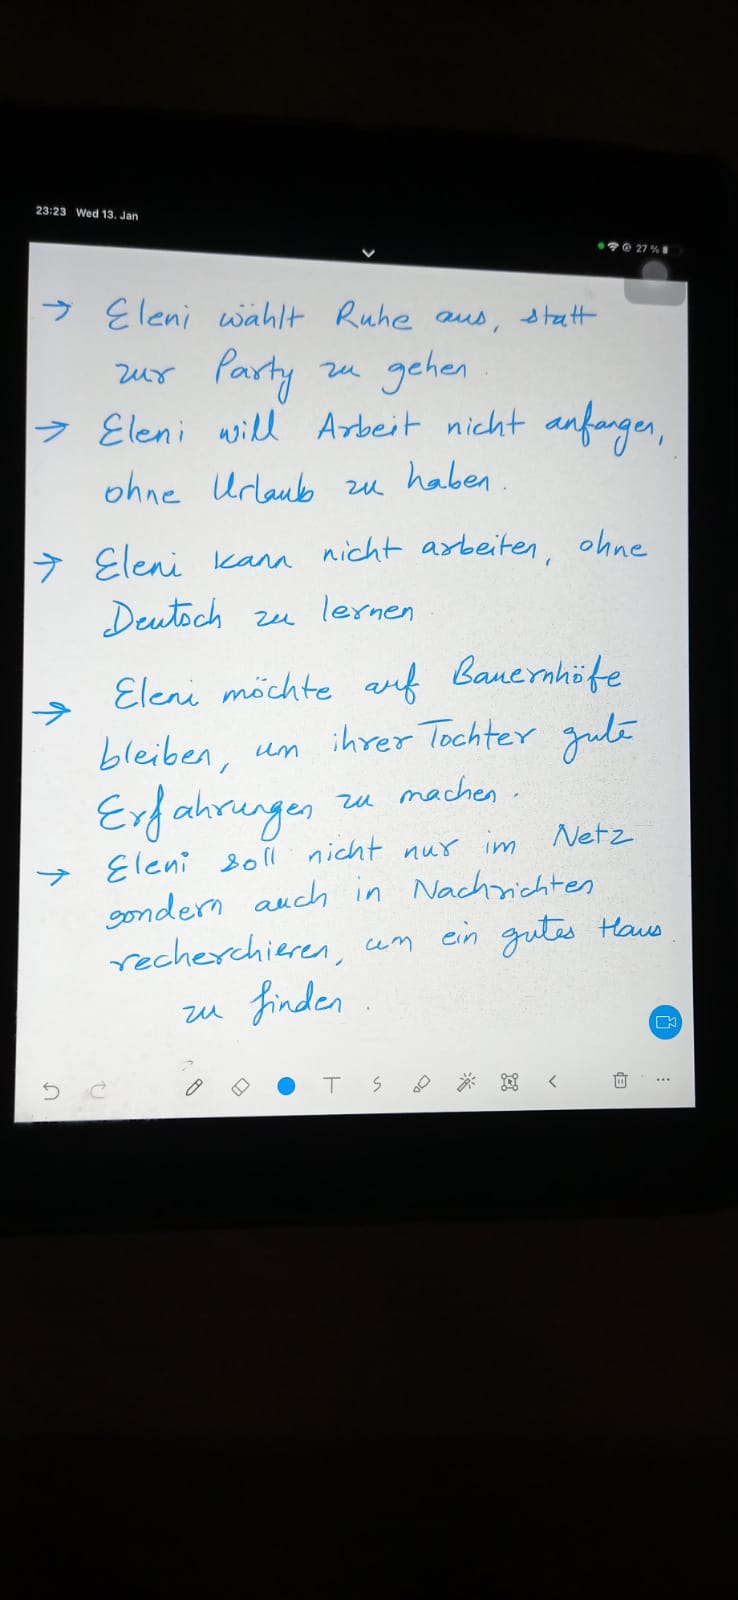 23:23 Wed 13. Jan
27 %
→ Eleni wählt Ruhe aus, statt
zur Party zu gehen.
→ Eleni will Arbeit nicht anfangen,
ohne Urlaub zu haben.
→ Eleni kann nicht arbeiten, ohne
Deutsch zu lernen
→ Eleni möchte auf Bauernhöfe
bleiben, um ihrer Tochter gute
Erfahrungen zu machen.
→ Eleni soll nicht nur im Netz
sondern auch in Nachrichten
recherchieren, um ein gutes Haus
zu finden.
T